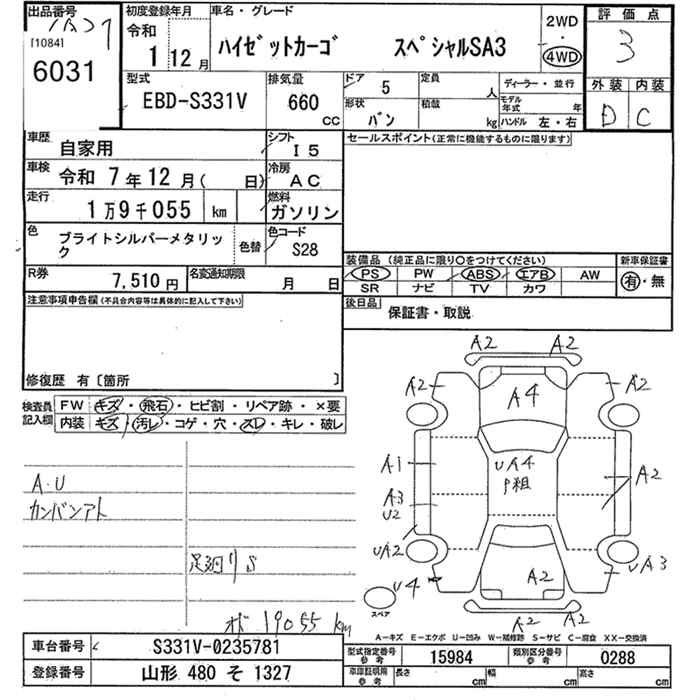 出品番号
[1084]
6031
初度登録年月
令和
1 12月
車名・グレード
ハイゼットカーゴ スペシャルSA3
2WD
・
4WD
評価点
3
外装 内装
D C
型式
EBD-S331V
排気量
660
CC
ドア
5
形状
バン
定員
人
積載
kg
ディーラー・並行
モデル年式 年
ハンドル 左・右
車歴
自家用
シフト
I5
車検
令和 7年12月( 日)
冷房
AC
走行
1万9千055 km
燃料
ガソリン
色
ブライトシルバーメタリック
色替
色コード
S28
R券
7,510円
名変通知期限
月 日
セールスポイント(正常に機能するものに限ります)
装備品(純正品に限り○をつけてください)
PS PW ABS エアB AW
SR ナビ TV カワ
新車保証書
有・無
後日品
保証書・取説
注意事項申告欄(不具合内容等は具体的に記入して下さい)
修復歴 有〔箇所 〕
検査員記入欄
FW キズ・飛石・ヒビ割・リペア跡・×要
内装 キズ・汚レ・コゲ・穴・スレ・キレ・破レ
A・U
カンバンアト
足廻りS
オド 19055 km
A2 A2
A2 A4 A2
A1 UA4 P組 A2
A3
U2
UA2 UA3
U4 A2
スペア
A2 A2
A-キズ E-エクボ U-凹み W-補修跡 S-サビ C-腐食 XX-交換済
車台番号
S331V-0235781
登録番号
山形 480 そ 1327
型式指定番号
参考
15984
類別区分番号
参考
0288
車庫証明用
参考
長さ cm
幅 cm
高さ cm